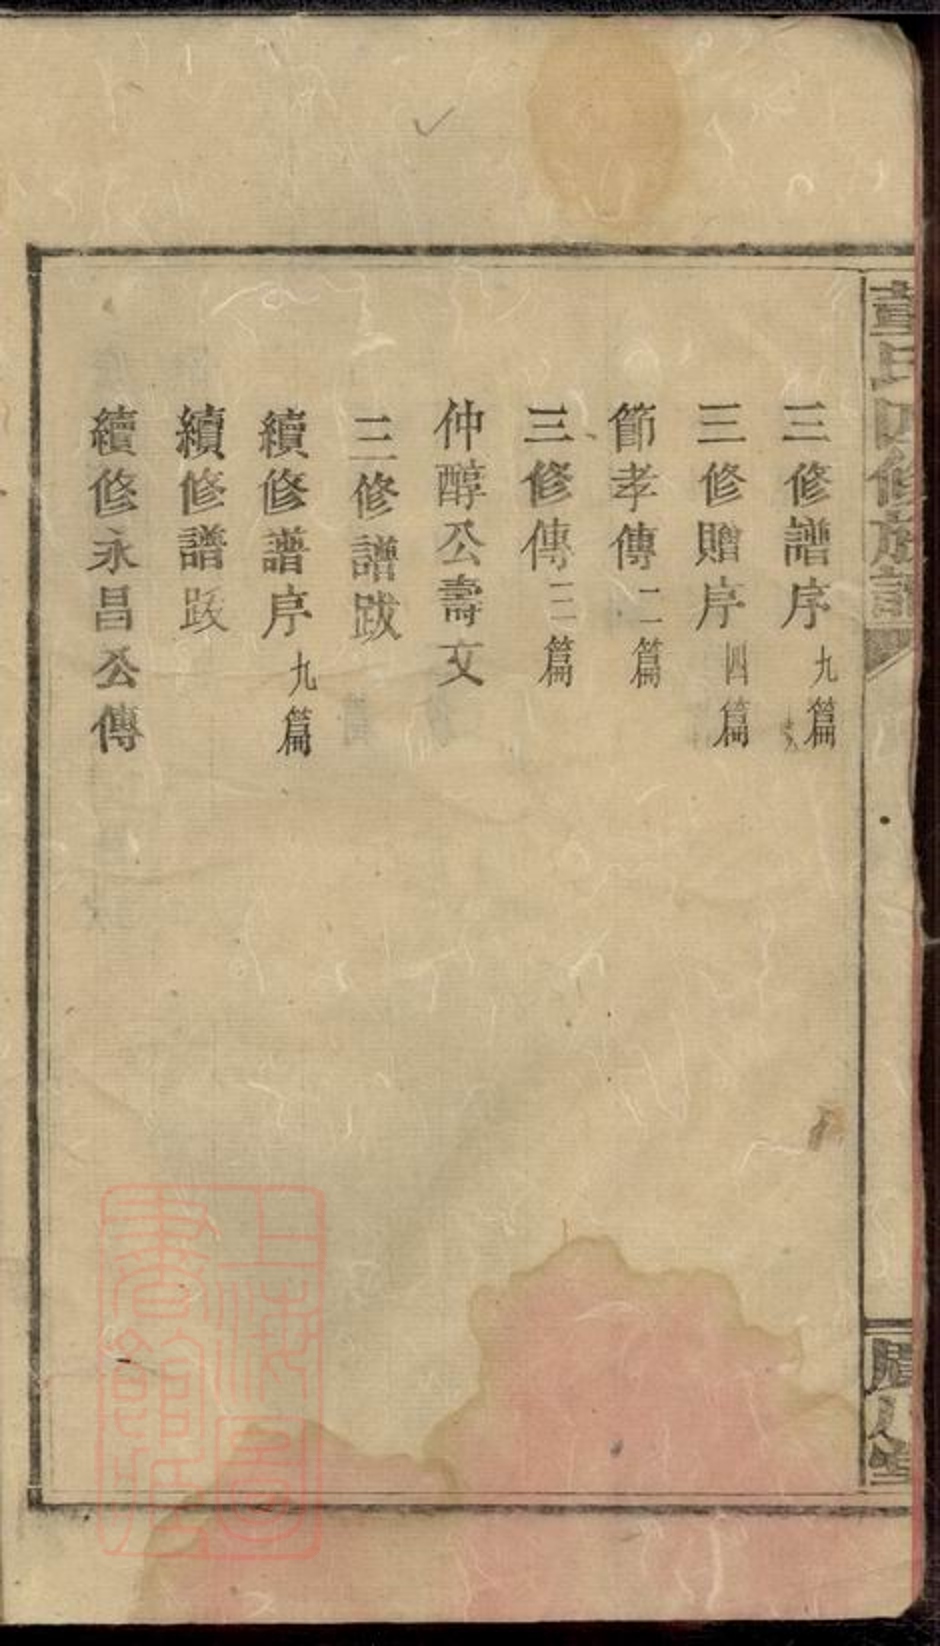 三修譜序九篇
三修贈序四篇
節孝傳二篇
三修傳三篇
仲醇公壽文
三修譜跋
續修譜序九篇
續修譜跋
續修永昌公傳
氏四修族譜
上海圖書館藏